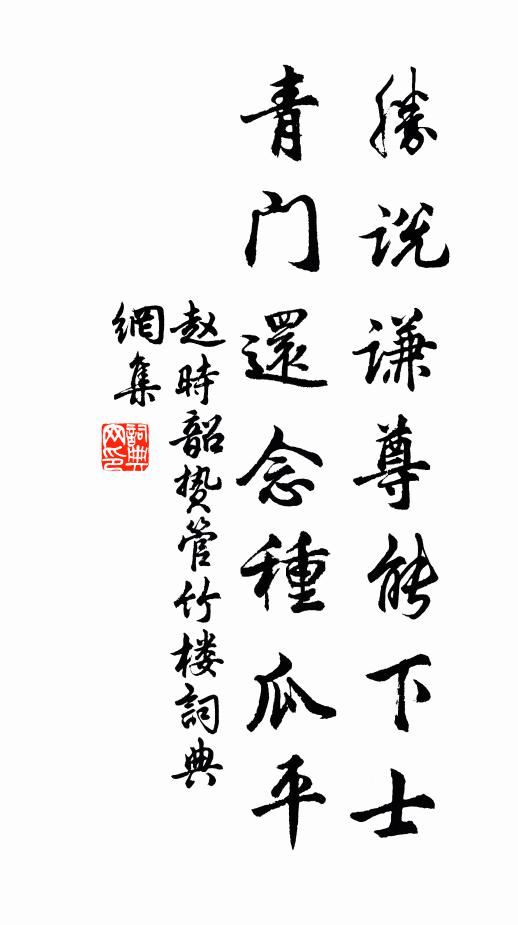 勝说謙尊能下士
青门還念種瓜平
赵時韶贽管竹楼詞典
網集
詞典网印